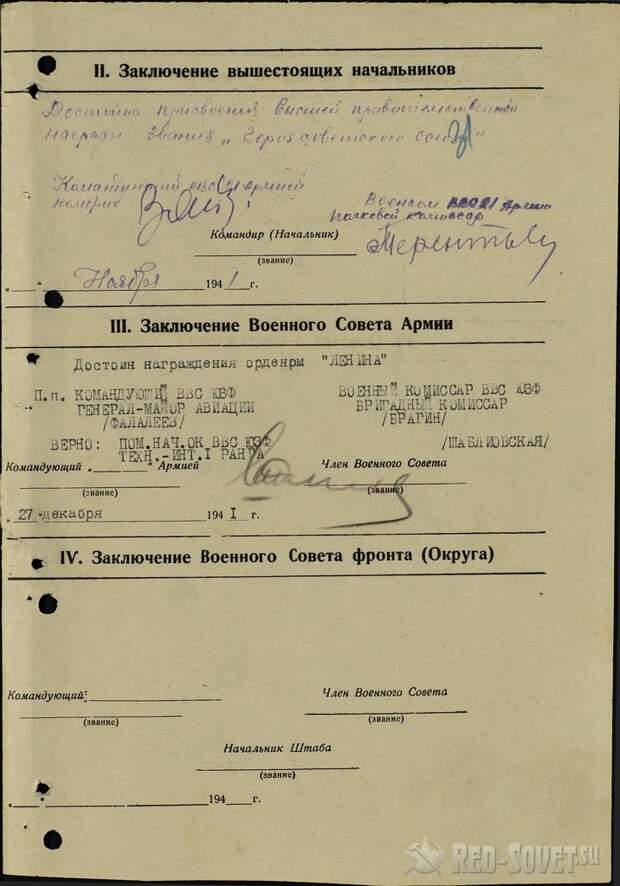 II. Заключение вышестоящих начальников
Достойна присвоения высшей правительственной
награды звания „Героя советского союза"
Командующий ВВС 21 Армией
комбриг
Военком ВВС 21 Армии
полковой комиссар
Командир (Начальник)
Терентьев
(звание)
„ " Ноября 1941 г.
III. Заключение Военного Совета Армии
Достоин награждения орденом "ЛЕНИНА"
П.п. КОМАНДУЮЩИЙ ВВС ЮЗФ
ГЕНЕРАЛ-МАЙОР АВИАЦИИ
/ФАЛАЛЕЕВ/
ВОЕННЫЙ КОМИССАР ВВС ЮЗФ
БРИГАДНЫЙ КОМИССАР
/БРАГИН/
ВЕРНО: ПОМ.НАЧ.ОК ВВС ЮЗФ
ТЕХН.-ИНТ.I РАНГА
/ШАБЛИОВСКАЯ/
Командующий „ " Армией
Член Военного Совета
(звание)
(звание)
„27" декабря 194I г.
IV. Заключение Военного Совета фронта (Округа)
Командующий:
Член Военного Совета
(звание)
(звание)
Начальник Штаба
(звание)
„ " 194 г.
RED-SOVET.SU